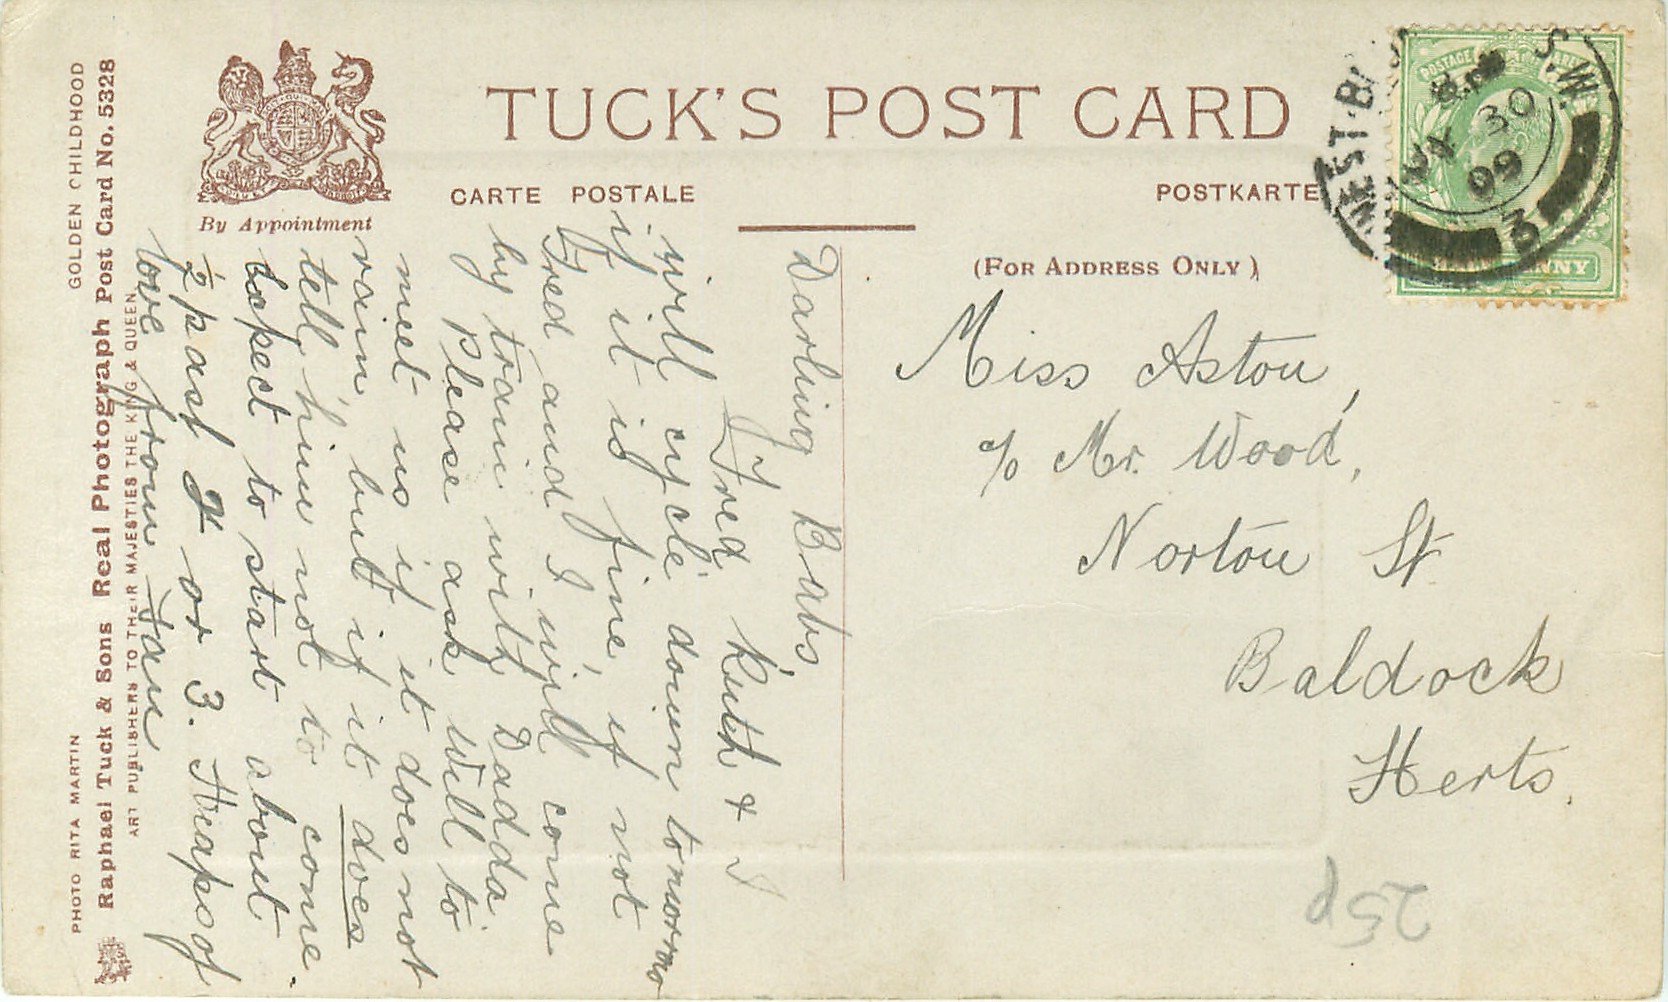 TUCK'S POST CARD
CARTE POSTALE
POSTKARTE
By Appointment
(FOR ADDRESS ONLY)
POSTAGE
NNY
S.W.
30
09
3
Miss Aston,
c/o Mr. Wood,
Norton St
Baldock
Herts.
25p
Darling Babs
Fred, Ruth & I
will cycle down tomorrow
if it is fine, if not
Fred and I will come
by train with Dadda
Please ask Will to
meet us if it does not
rain, but if it does
tell him not to come.
Expect to start about
½ past 2 or 3. Heaps of
love from Jan
GOLDEN CHILDHOOD
PHOTO RITA MARTIN
Raphael Tuck & Sons Real Photograph Post Card No. 5328
ART PUBLISHERS TO THEIR MAJESTIES THE KING & QUEEN